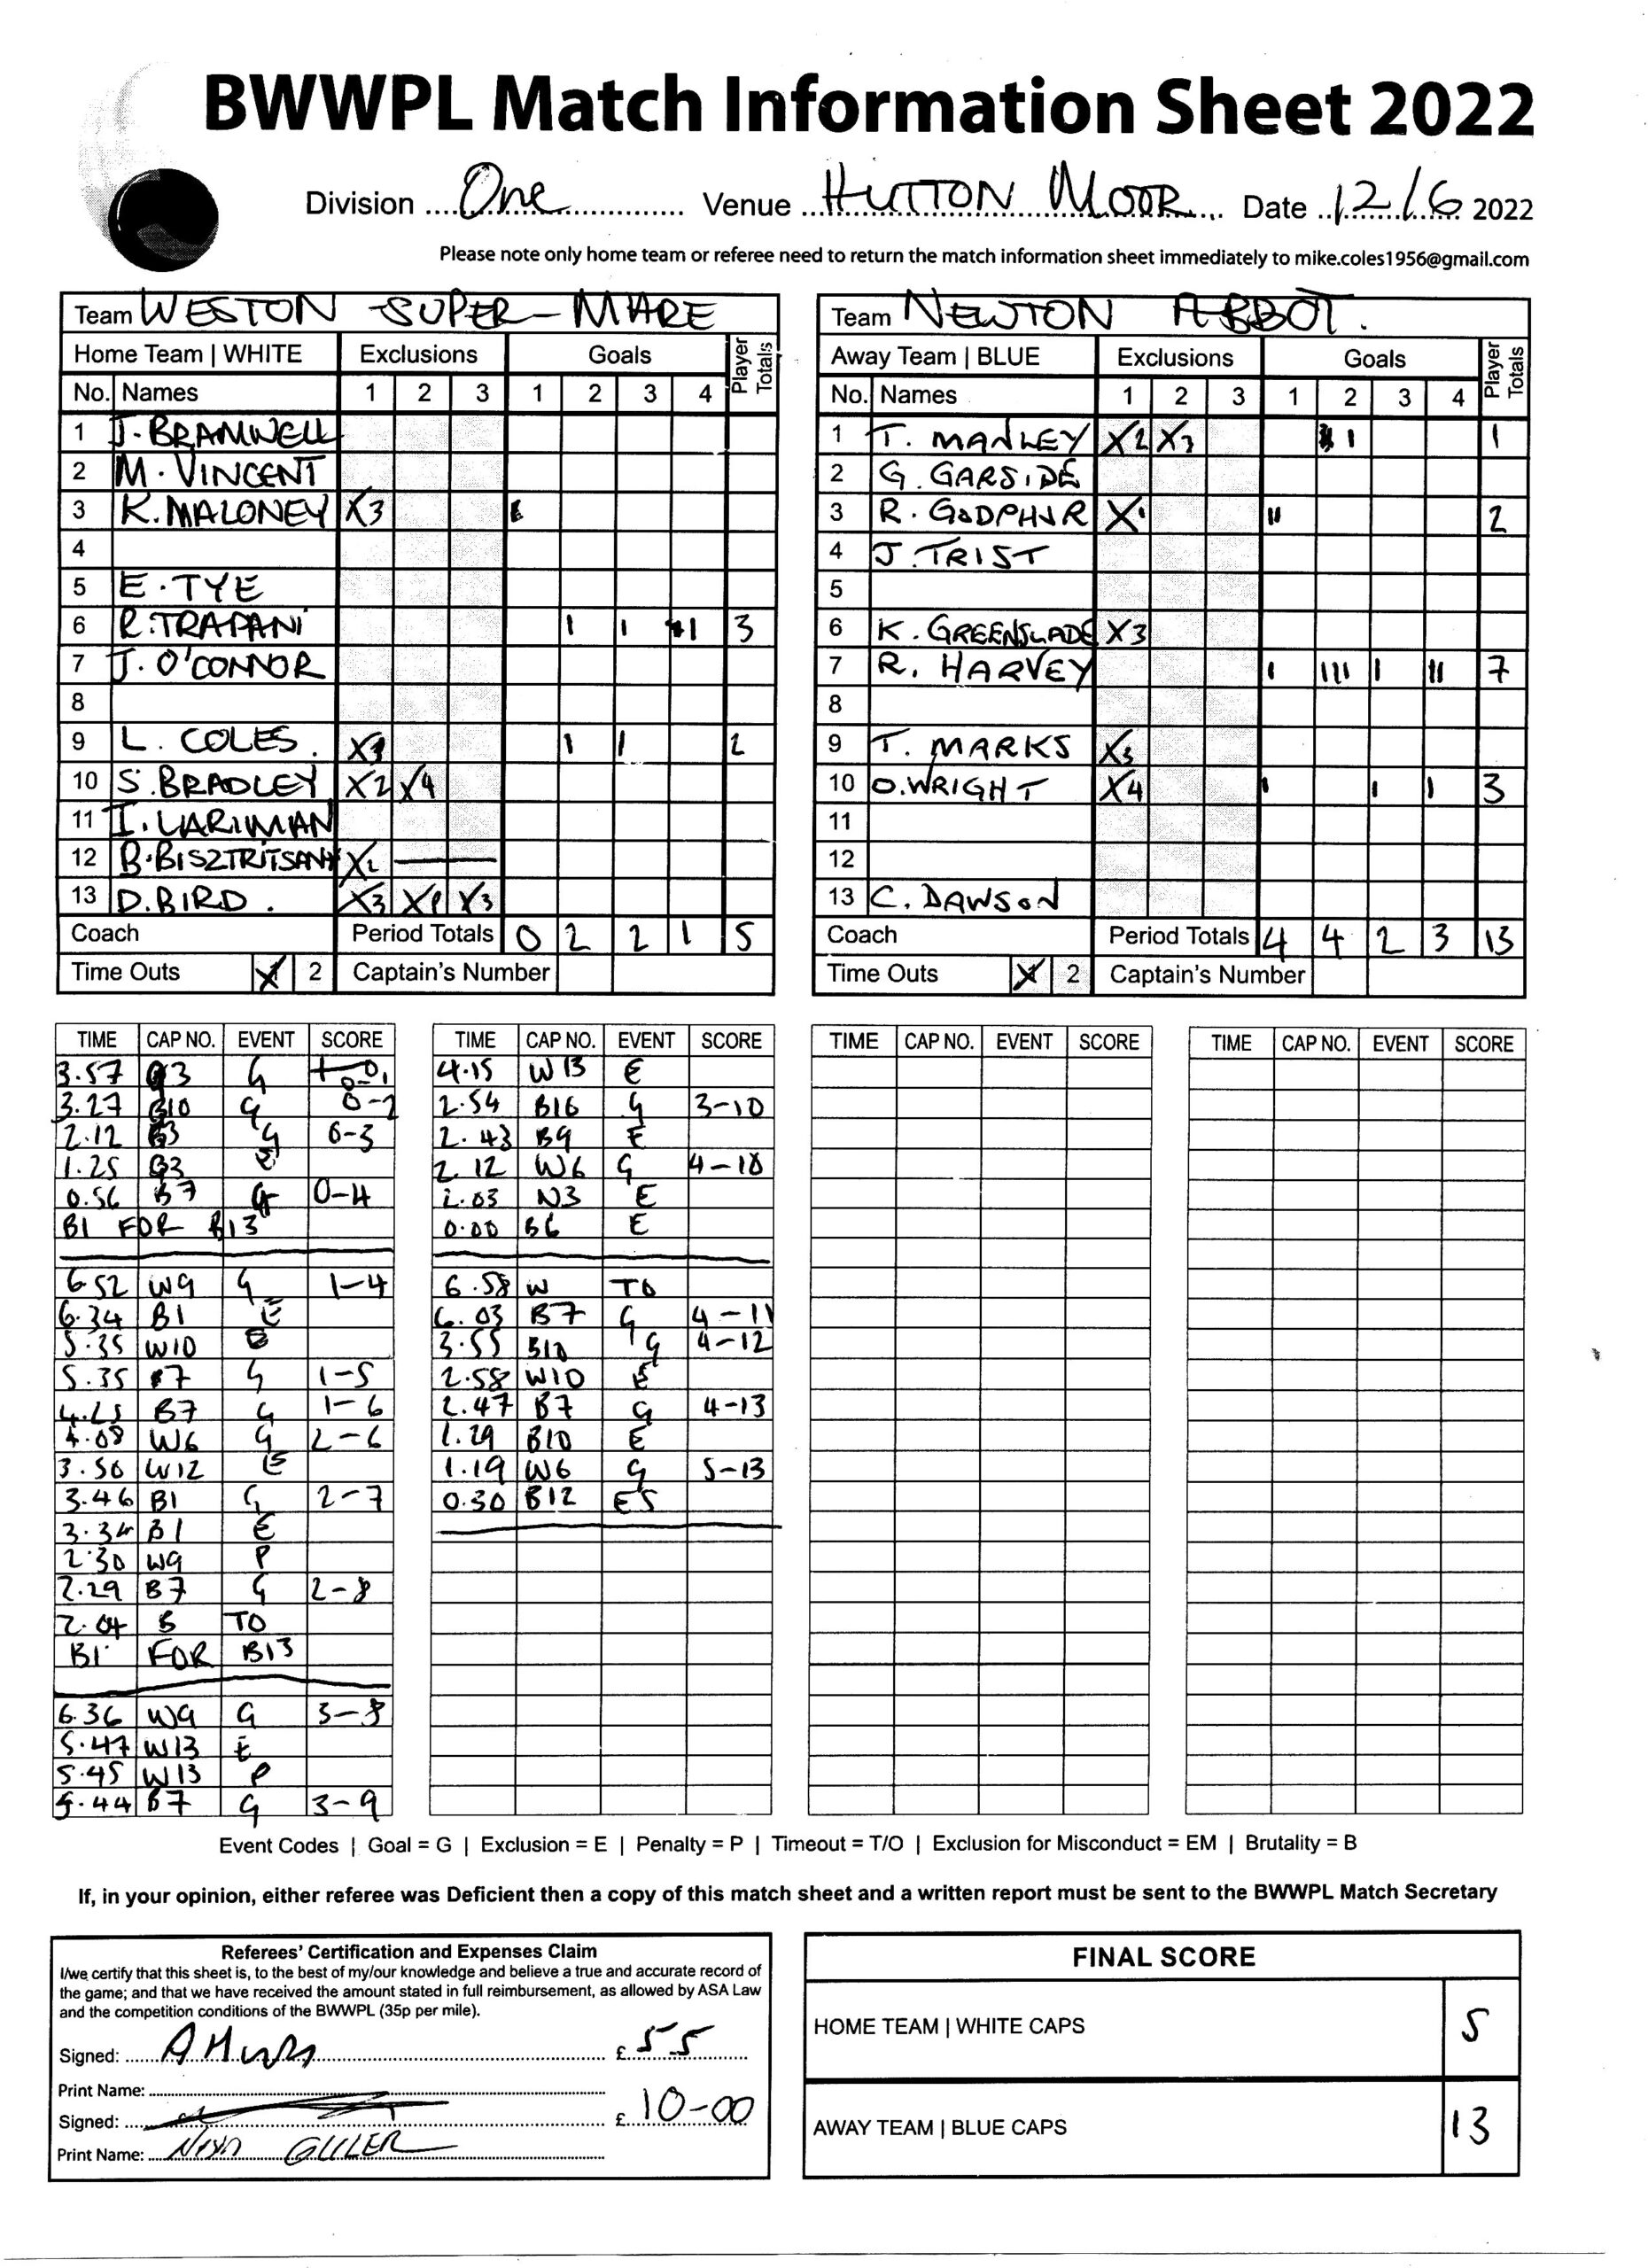 BWWPL Match Information Sheet 2022
Division One Venue HUTTON MOOR Date 12/6 2022
Please note only home team or referee need to return the match information sheet immediately to mike.coles1956@gmail.com
Team WESTON -SUPER-MARE
Home Team | WHITE Exclusions Goals Player Totals
No. Names 1 2 3 1 2 3 4
1 J. BRAMWELL
2 M. VINCENT
3 K. MALONEY X3
4
5 E. TYE
6 R. TRAPANI 1 1 1 3
7 J. O'CONNOR
8
9 L. COLES. 1 1 2
10 S. BRADLEY X2 X4
11 I. LARIMAN
12 B. BISZTRITSANY X2
13 D. BIRD. X3 X3
Coach Period Totals 0 2 2 1 5
Time Outs X 2 Captain's Number
Team NEWTON ABBOT.
Away Team | BLUE Exclusions Goals Player Totals
No. Names 1 2 3 1 2 3 4
1 T. MANLEY X2 X2 1 1
2 G. GARSIDE
3 R. GODPHUR X1 11 2
4 J. TRIST
5
6 K. GREENSLADE X3
7 R. HARVEY 1 111 1 11 7
8
9 T. MARKS X3
10 O. WRIGHT X4 1 1 1 3
11
12
13 C. DAWSON
Coach Period Totals 4 4 2 3 13
Time Outs X 2 Captain's Number
TIME CAP NO. EVENT SCORE
3.57 B3 G 0-1
3.27 B10 G 0-2
2.12 B3 G 0-3
1.25 B3 E
0.56 B7 G 0-4
B1 FOR B13
6.52 W9 G 1-4
6.34 B1 E
5.35 W10 E
5.35 B7 G 1-5
4.25 B7 G 1-6
4.08 W6 G 2-6
3.50 W12 E
3.46 B1 G 2-7
3.34 B1 E
2.30 W9 P
2.29 B7 G 2-8
2.04 B TO
B1 FOR B13
6.36 W9 G 3-8
5.47 W13 E
5.45 W13 P
5.44 B7 G 3-9
TIME CAP NO. EVENT SCORE
4.15 W13 E
2.54 B10 G 3-10
2.43 B9 E
2.12 W6 G 4-10
2.03 W3 E
0.00 B6 E
6.58 W TO
6.03 B7 G 4-11
3.55 B10 G 4-12
2.58 W10 E
2.47 B7 G 4-13
1.29 B10 E
1.19 W6 G 5-13
0.30 B12 ES
TIME CAP NO. EVENT SCORE
TIME CAP NO. EVENT SCORE
Event Codes | Goal = G | Exclusion = E | Penalty = P | Timeout = T/O | Exclusion for Misconduct = EM | Brutality = B
If, in your opinion, either referee was Deficient then a copy of this match sheet and a written report must be sent to the BWWPL Match Secretary
Referees' Certification and Expenses Claim
I/we certify that this sheet is, to the best of my/our knowledge and believe a true and accurate record of
the game; and that we have received the amount stated in full reimbursement, as allowed by ASA Law
and the competition conditions of the BWWPL (35p per mile).
Signed: £ 55
Print Name:
Signed: £ 10-00
Print Name:
FINAL SCORE
HOME TEAM | WHITE CAPS 5
AWAY TEAM | BLUE CAPS 13